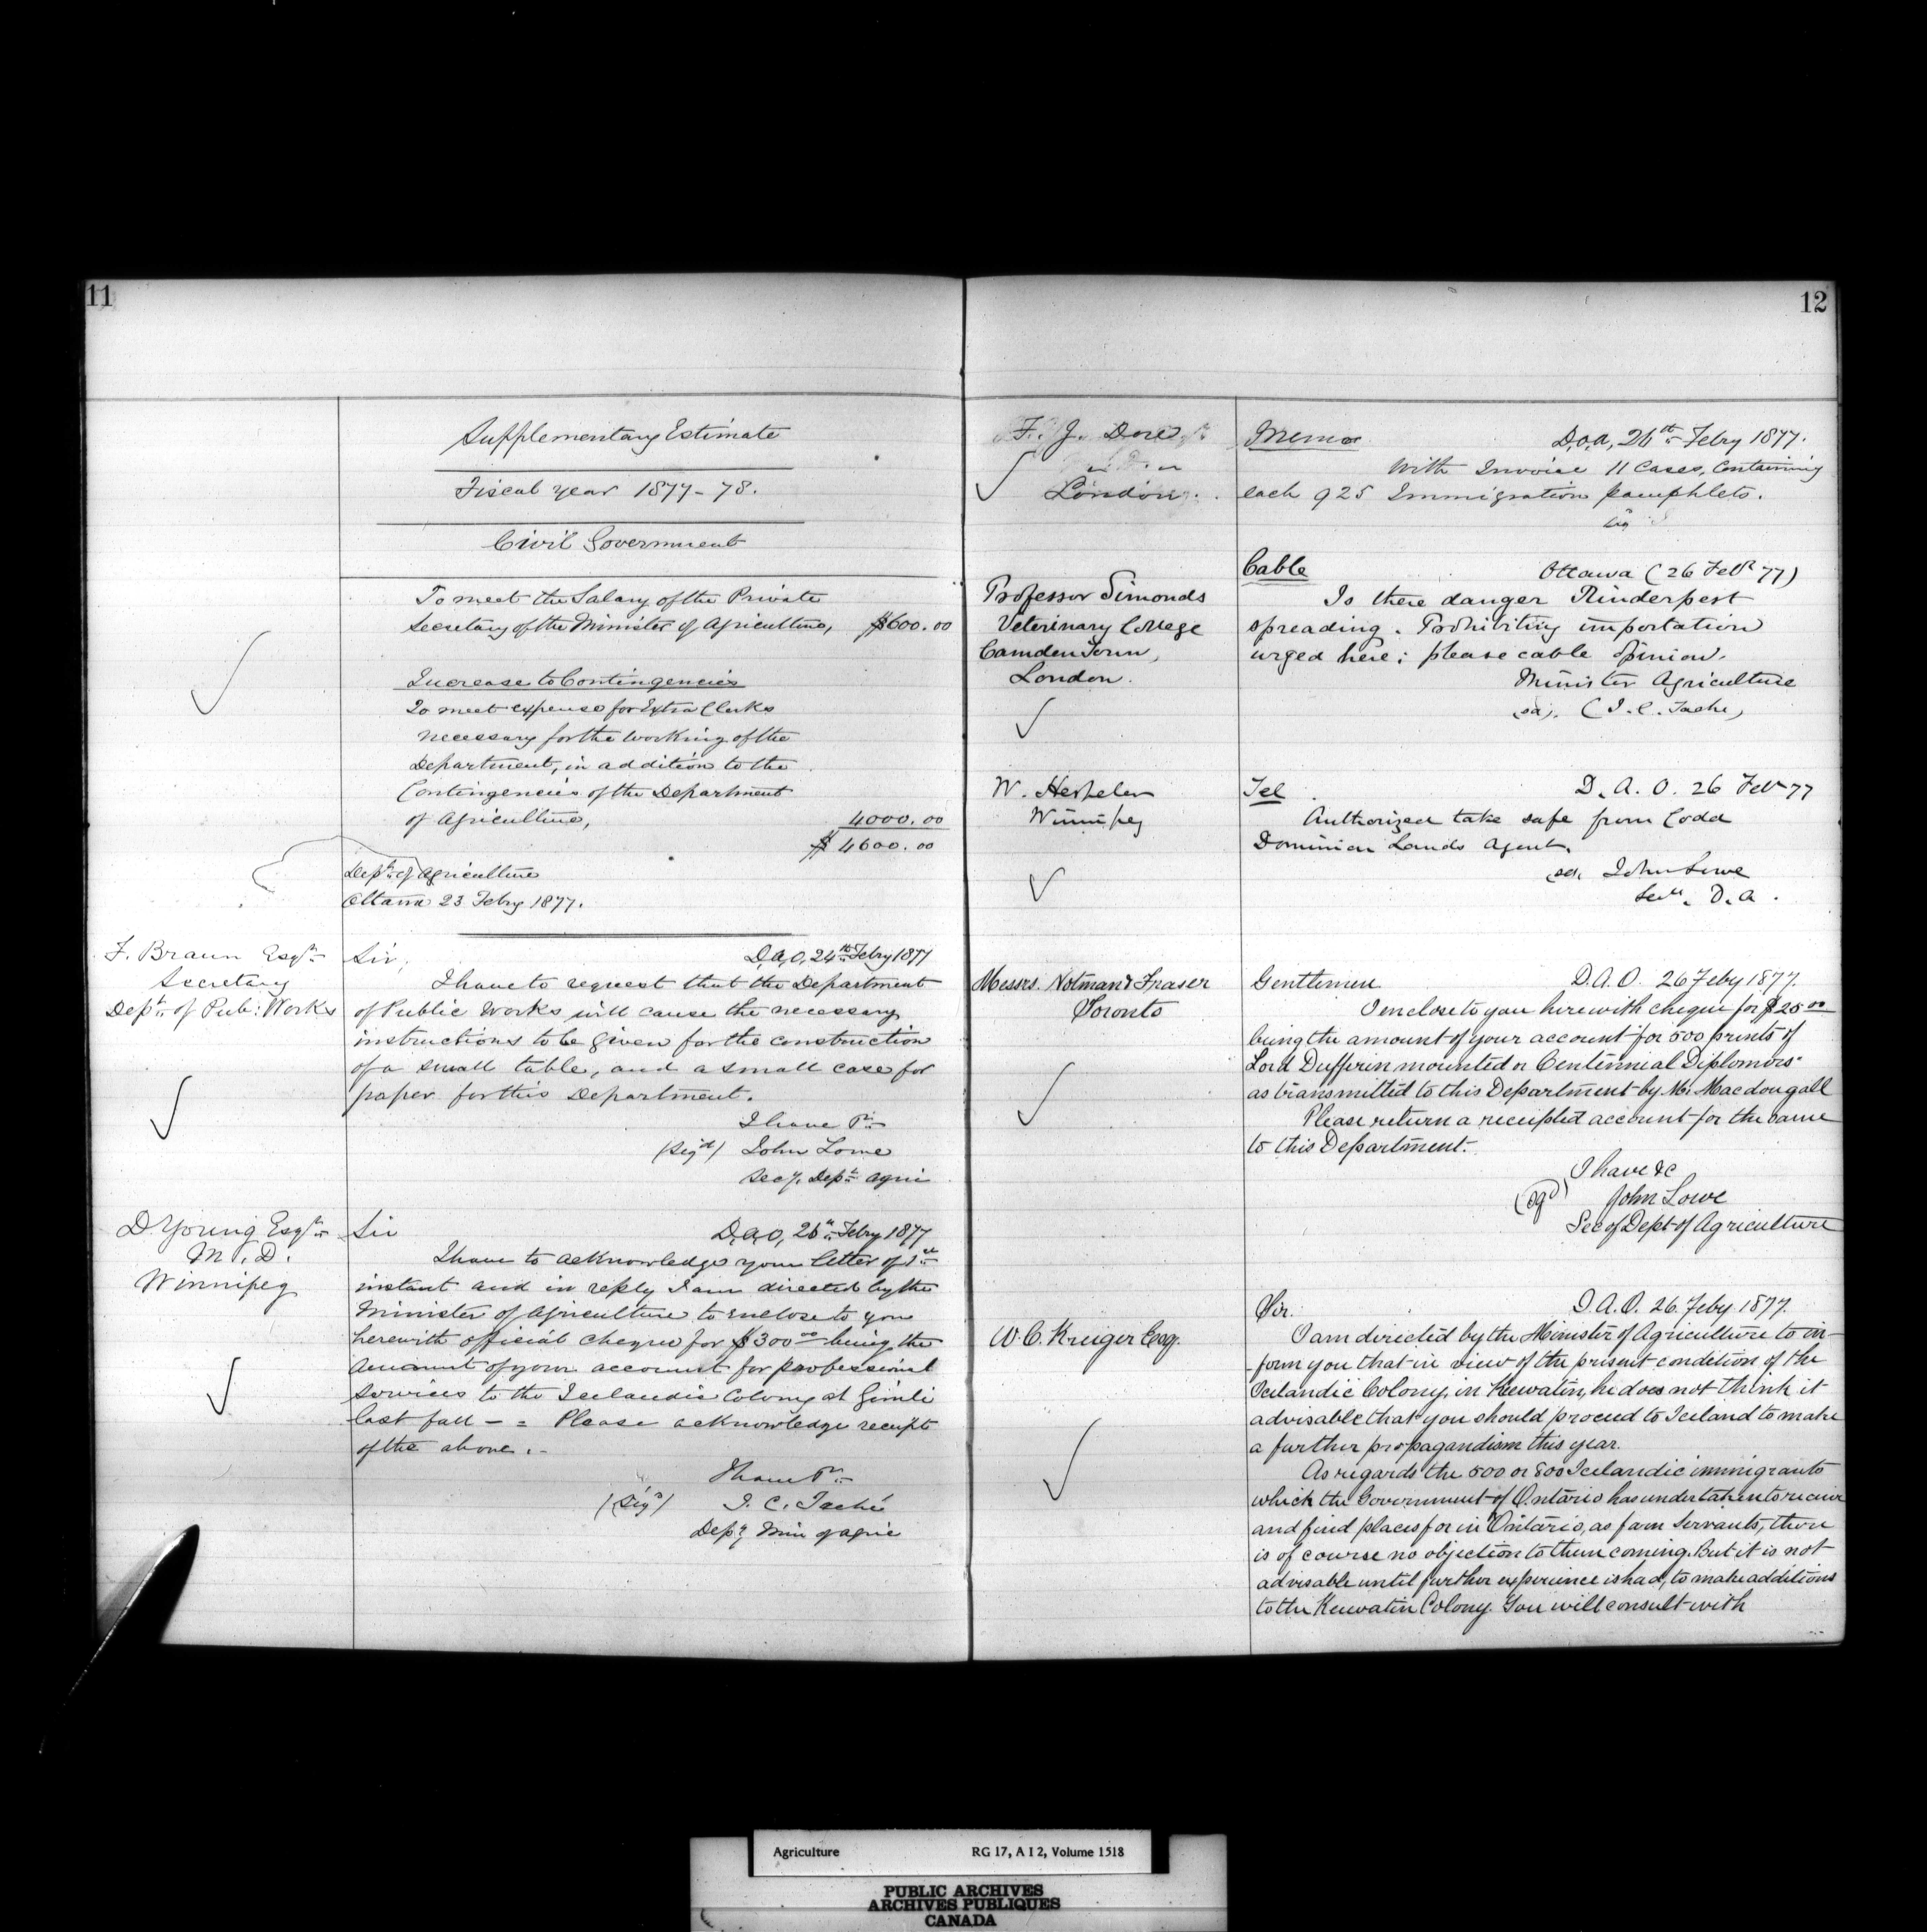 11
Supplementary Estimate
Fiscal year 1877-78.
Civil Government
To meet the Salary of the Private
Secretary of the Minister of Agriculture, $600.00
Increase to Contingencies
To meet expense for Extra Clerks
necessary for the working of the
Department, in addition to the
Contingencies of the Department
of Agriculture, 4000.00
$ 4600.00
Dept. of Agriculture
Ottawa 23 Febry 1877.
F. Braun Esqr.
Secretary
Dept. of Pub: Works
Sir, D,A,O, 24th Febry 1877
I have to request that the Department
of Public Works will cause the necessary
instructions to be given for the construction
of a small table, and a small case for
paper for this Department.
I have &c
(Sigd) John Lowe
Secy. Dept. Agri
D. Young Esqr.
M.D.
Winnipeg
Sir D,A,O, 26th Febry 1877
I have to acknowledge your letter of 1st
instant and in reply I am directed by the
Minister of Agriculture to enclose to you
herewith official cheque for $300.00 being the
amount of your account for professional
services to the Icelandic Colony at Gimli
last fall - = Please acknowledge receipt
of the above. -
I have &c
(Sigd) J. C. Taché
Depy. Min of Agric
12
F. J. Dore
London.
Memo D,O,A, 26th Febry 1877.
With Invoice 11 Cases, containing
each 925 Immigration pamphlets.
Professor Simonds
Veterinary College
Camden Town,
London.
Cable Ottawa (26 Feb 77)
Is there danger Rinderpest
spreading. Prohibiting importation
urged here; please cable opinion.
Minister Agriculture
(sd). (J. C. Tache)
W. Hespeler
Winnipeg
Tel. D. A. O. 26 Feb 77
Authorized take safe from Codd
Dominion Lands Agent.
(sd. John Lowe
Secy. D. A.
Messrs. Notman & Fraser
Toronto
Gentlemen D.A.O. 26 Feby 1877.
I enclose to you herewith cheque for $25.00
being the amount of your account for 500 prints of
Lord Dufferin mounted on Centennial Diplomas
as transmitted to this Department by Mr. Macdougall
Please return a receipted account for the same
to this Department.
I have &c
(sgd) John Lowe
Sec of Dept of Agriculture
W. C. Kruiger Esq.
Sir. D.A.O. 26 Feby 1877.
I am directed by the Minister of Agriculture to in-
form you that in view of the present condition of the
Icelandic Colony, in Keewatin, he does not think it
advisable that you should proceed to Iceland to make
a further propagandism this year.
As regards the 500 or 800 Icelandic immigrants
which the Government of Ontario has undertaken to receive
and find places for in Ontario, as farm Servants, there
is of course no objection to them coming. But it is not
advisable until further experience is had, to make additions
to the Keewatin Colony. You will consult with
Agriculture RG 17, A I 2, Volume 1518
PUBLIC ARCHIVES
ARCHIVES PUBLIQUES
CANADA